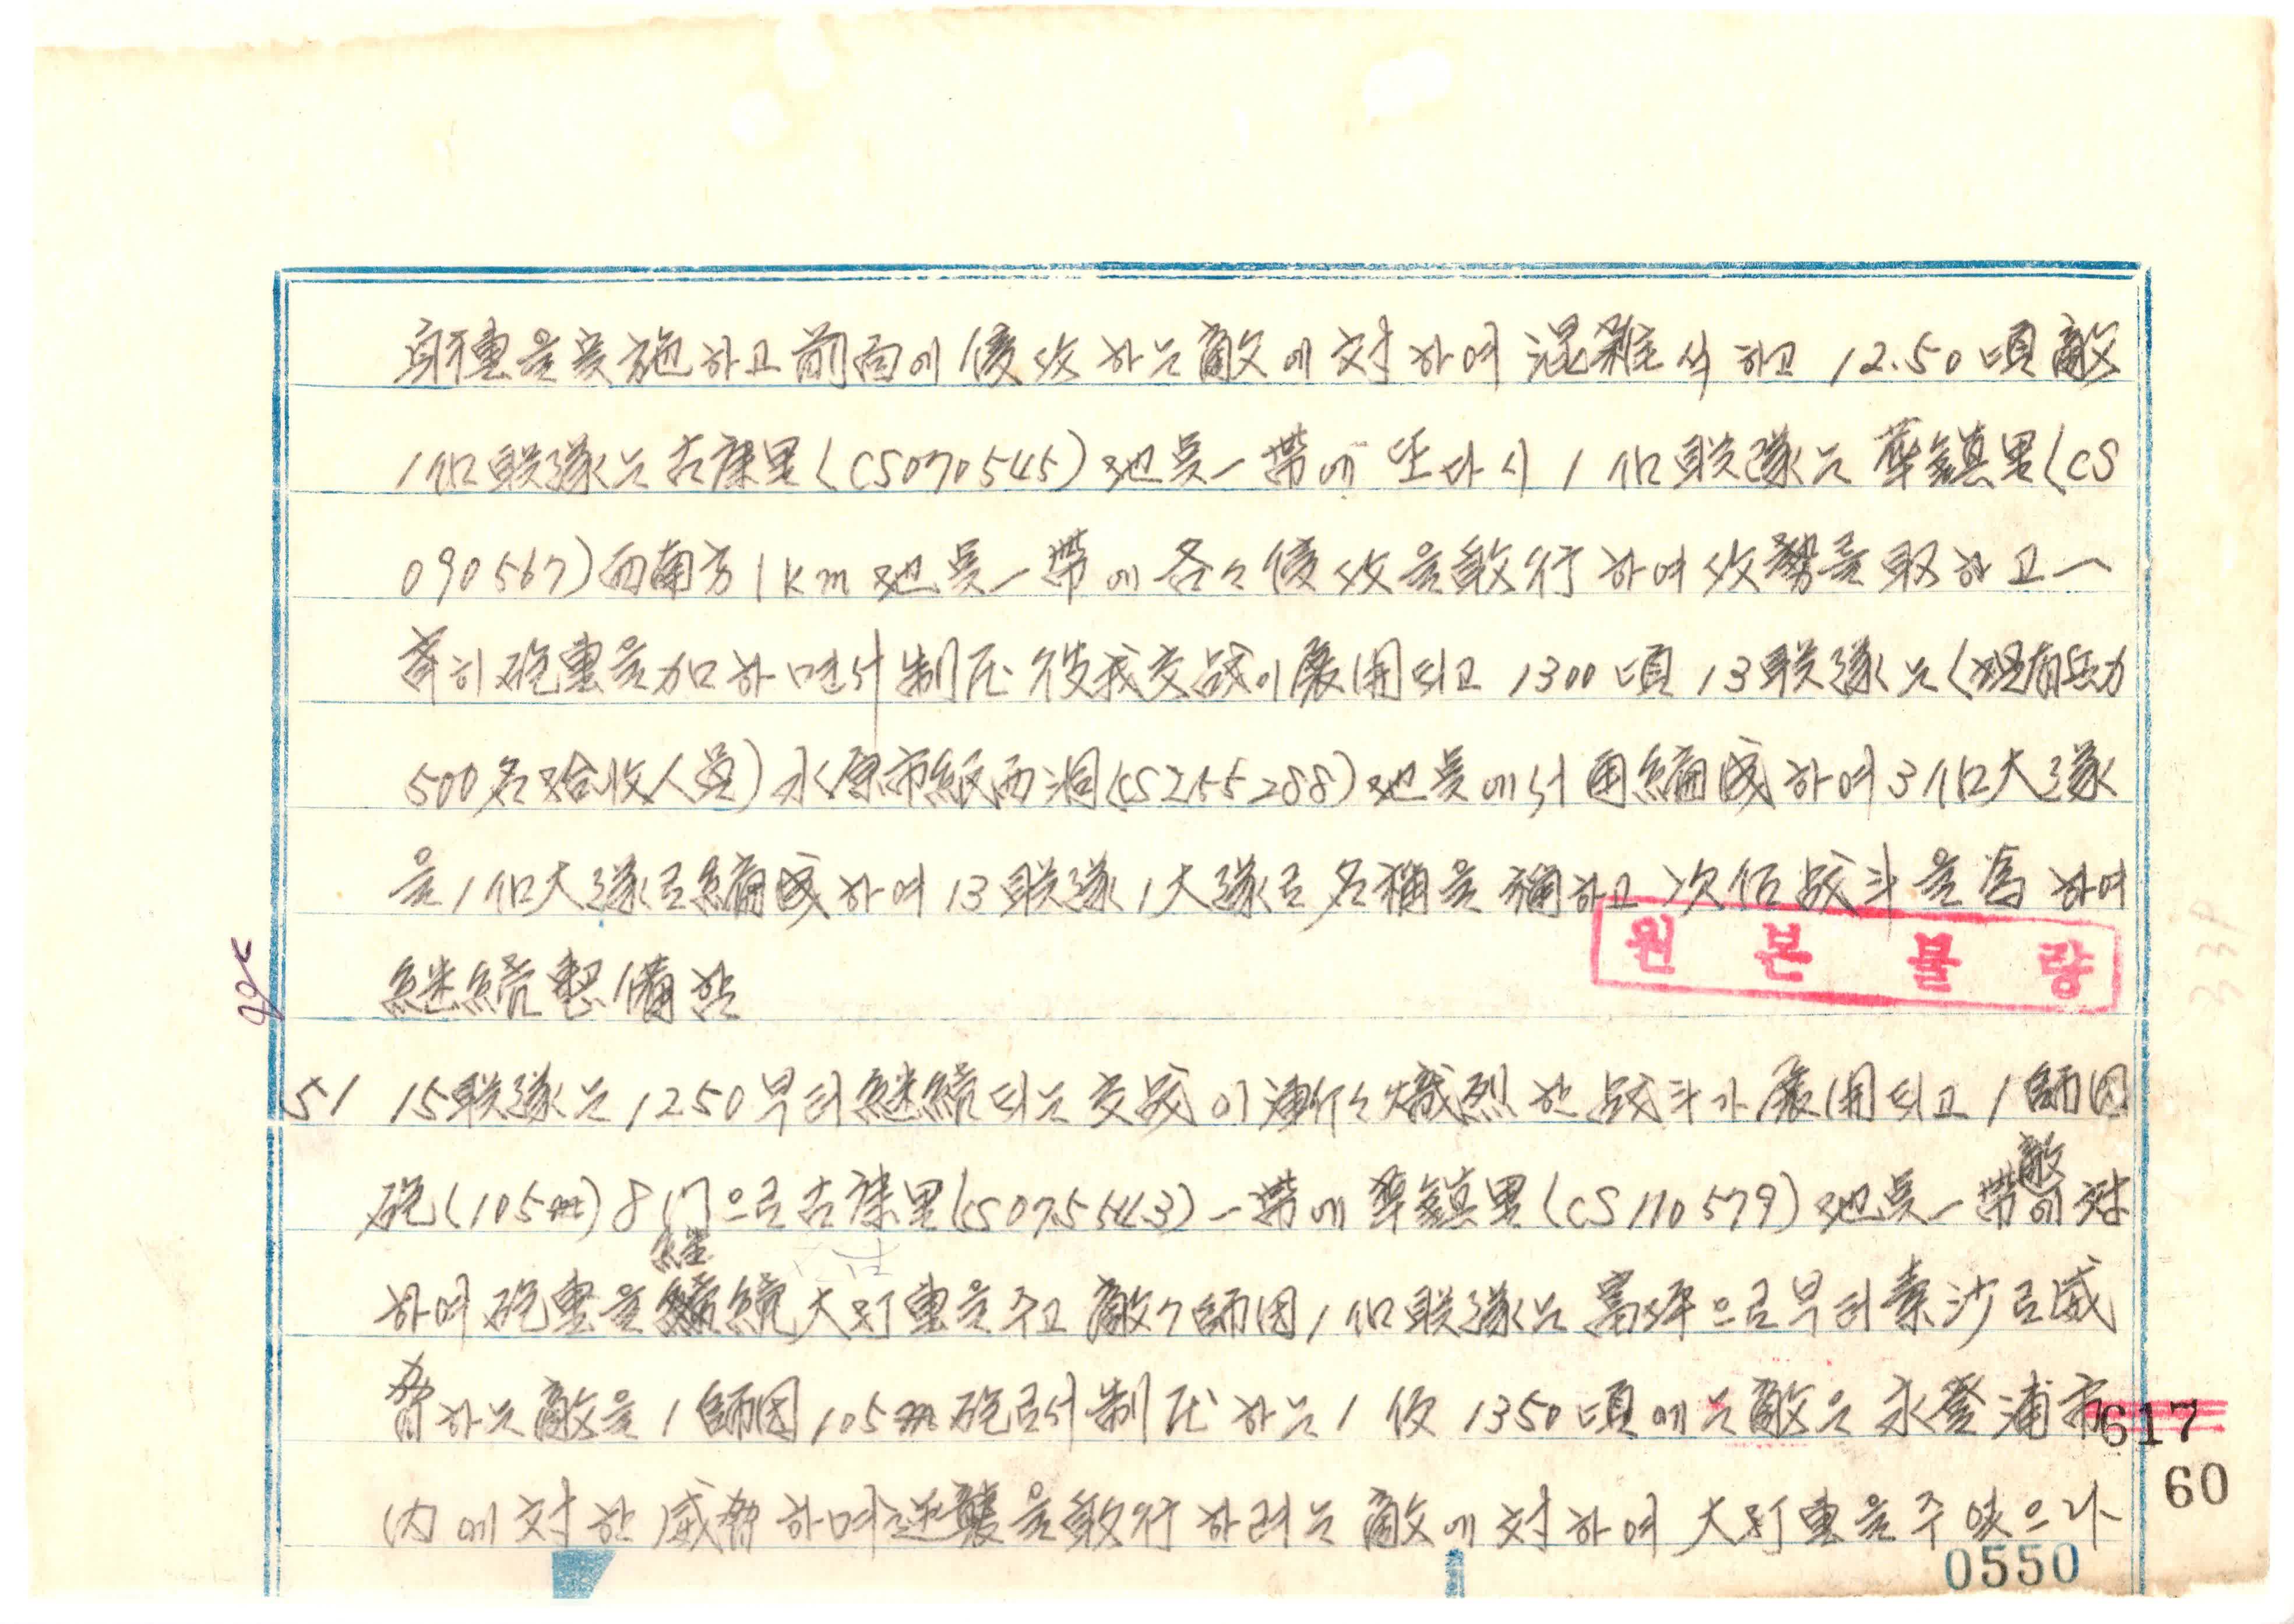 射擊을 実施하고 前面에 侵攻하는 敵에 対하여 混雑식하고 12.50頃 敵
1個联隊는 古棲里(CS070545)地点一帯에 또다시 1個联隊는 華鎮里(CS
090567)西南方 1km 地点一帯에 各々 侵攻을 敢行하여 攻勢를 取하고 一
斉히 砲擊을 加하면서 制圧 彼我交战이 展開되고 1300頃 13联隊는 (現有兵力
500名 收人員) 水原市 西洞(CS255288)地点에서 編成하여 3個大隊
을 1個大隊로 編成하여 13联隊 1大隊로 名稱을 稱하고 次 战斗을 為하여
継続 整備함
51 15联隊는 1250부터 継続되는 交战이 漸々 熾烈한 战斗가 展開되고 1師団
砲(105㎜) 8門으로 古棲里(CS075543)一帯에 華鎮里(CS110579)地点一帯 敵에 対
하여 砲擊을 継続 大打擊을 주고 敵 7師団 1個联隊는 富坪으로부터 素沙로 威
脅하는 敵을 1師団 105㎜砲로서 制圧하는 1便 1350頃에는 敵은 永登浦市
内에 対한 威脅하며 逆襲을 敢行하려는 敵에 対하여 大打擊을 주었으나
원본불량
33P
617
60
0550